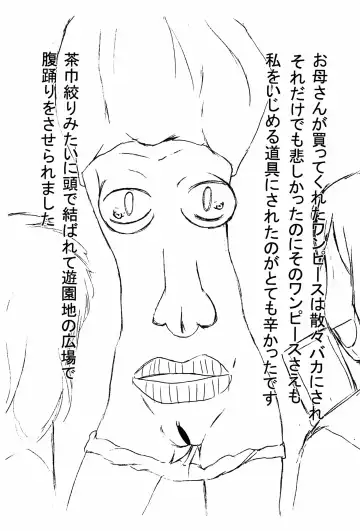 お母さんが買ってくれたワンピースは散々バカにされ
それだけでも悲しかったのにそのワンピースさえも
私をいじめる道具にされたのがとても辛かったです
茶巾絞りみたいに頭で結ばれて遊園地の広場で
腹踊りをさせられました